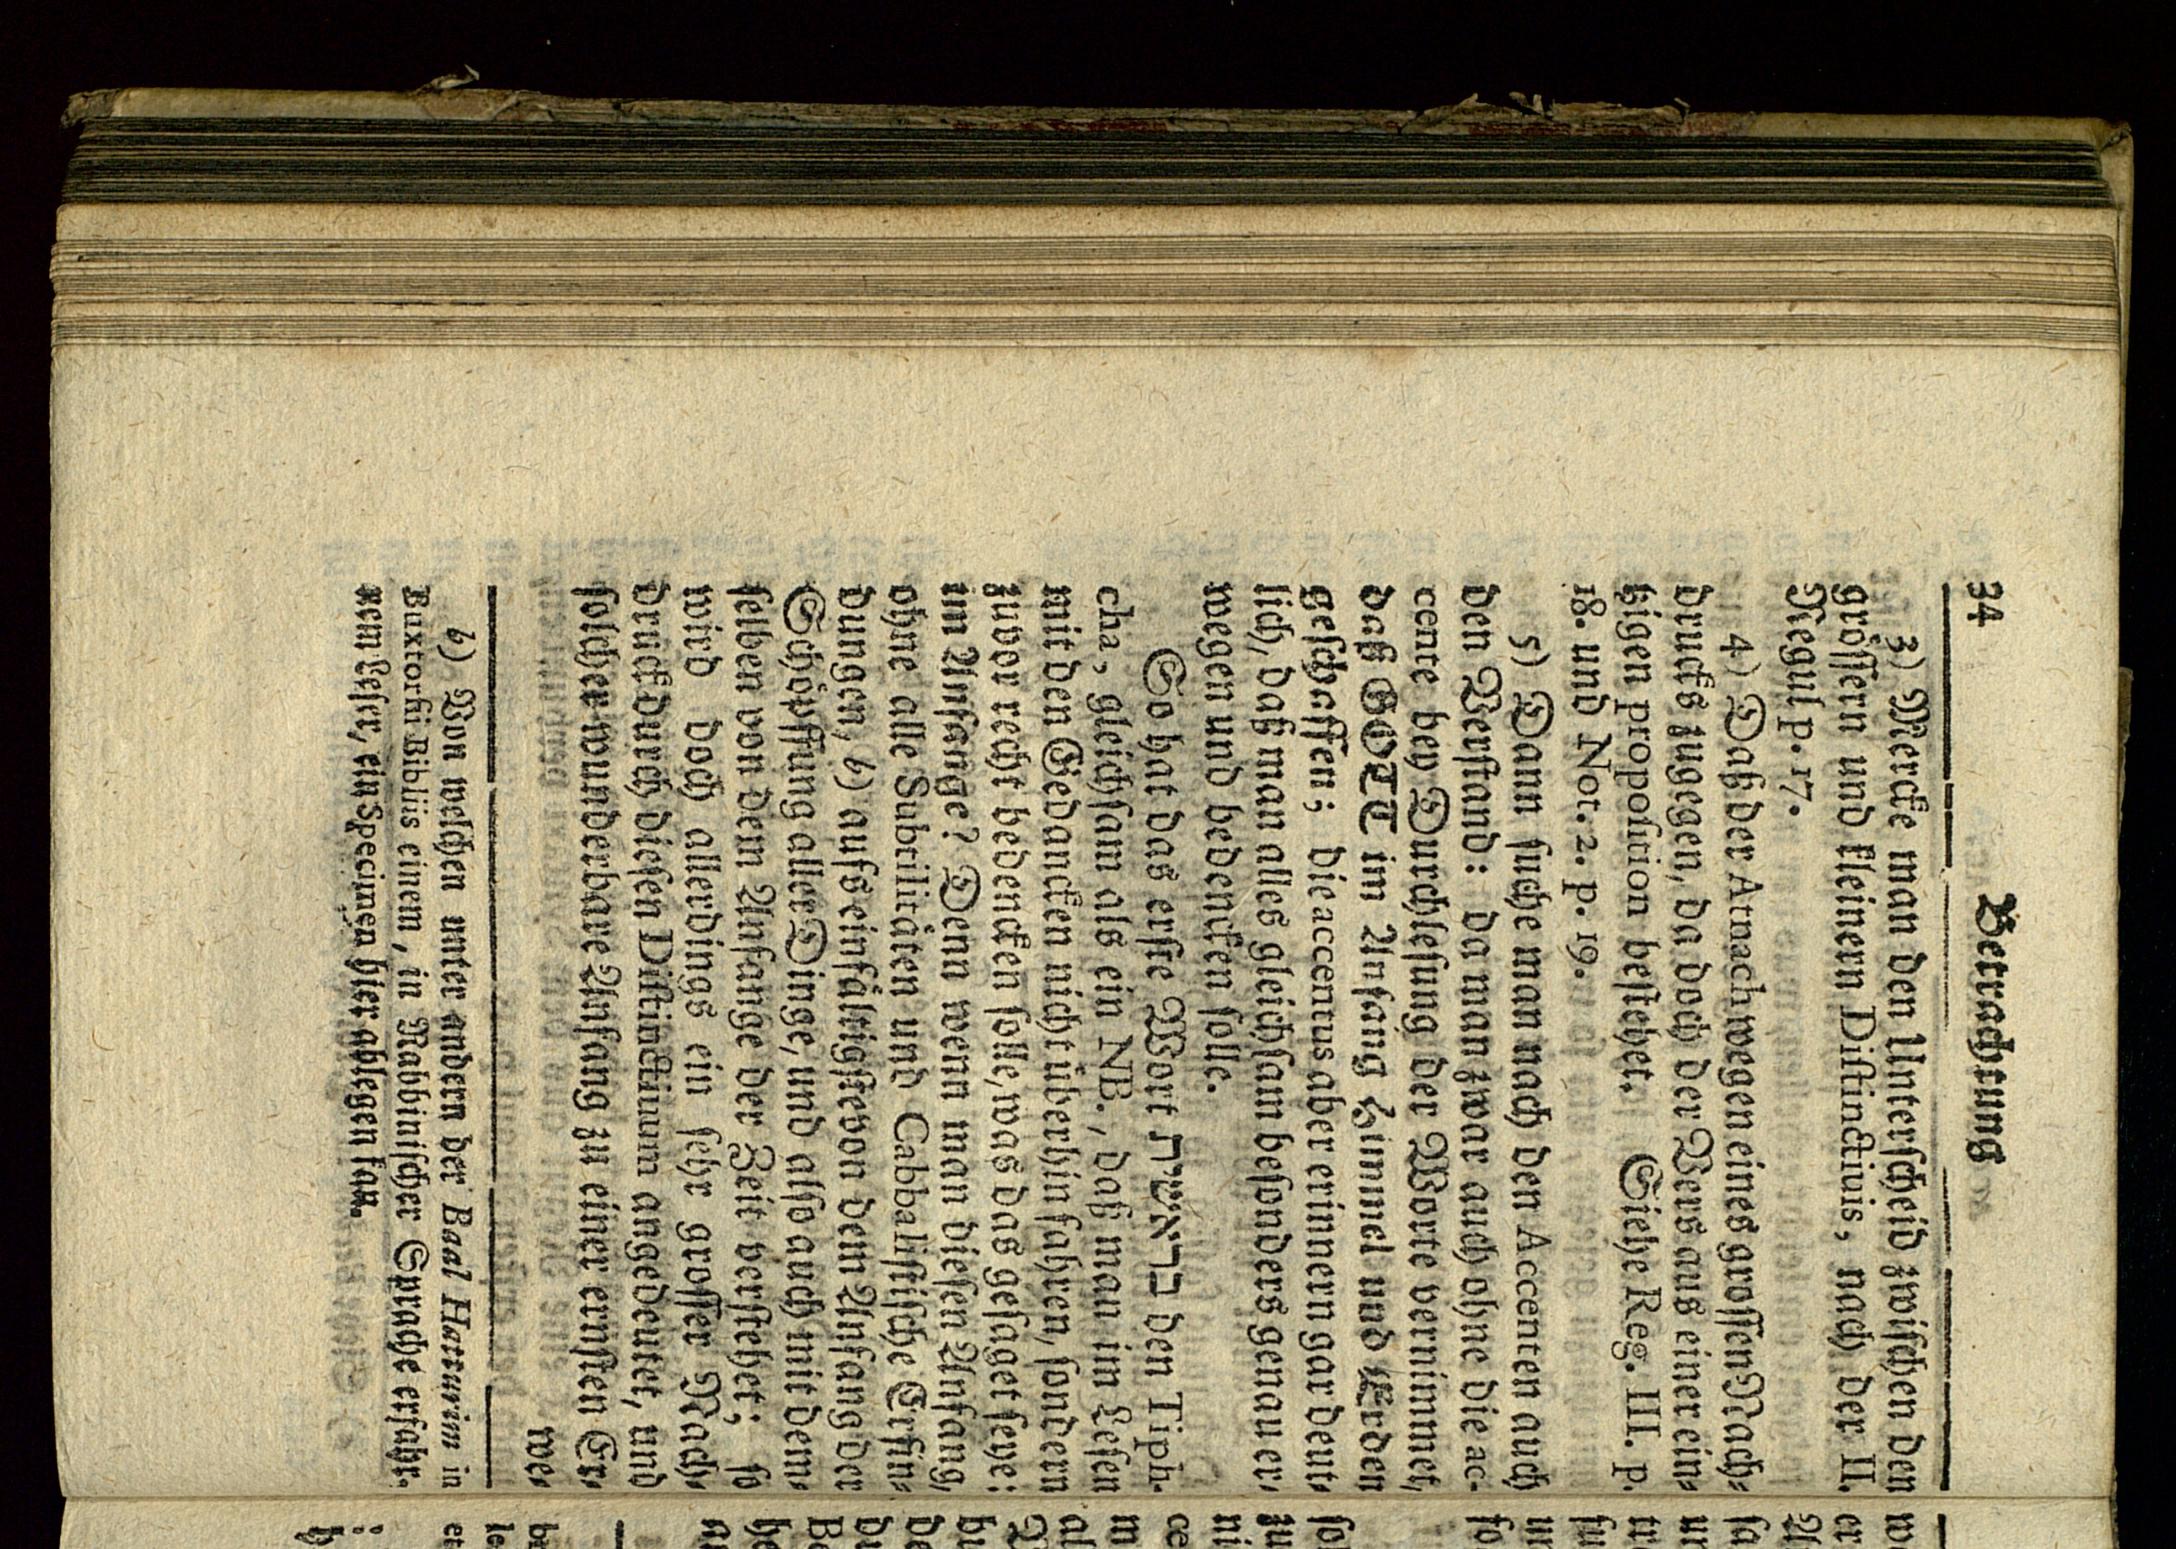 34 Betrachtung
3) Mercke man den Unterscheid zwischen den
grössern und kleinern Distinctivis, nach der II.
Regul p. 17.
4) Daß der Atnach wegen eines grossen Nach-
drucks zugegen, da doch der Vers aus einer ein-
tzigen proposition bestehet. Siehe Reg. III. p.
18. und Not. 2. p. 19.
5) Dann suche man nach den Accenten auch
den Verstand: da man zwar auch ohne die ac-
cente bey Durchlesung der Worte vernimmet,
daß GOTT im Anfang Himmel und Erden
geschaffen; die accentus aber erinnern gar deut-
lich, daß man alles gleichsam besonders genauer,
wegen und bedencken solle.
So hat das erste Wort בראשית den Tiph-
cha, gleichsam als ein NB., daß man im Lesen
mit den Gedancken nicht überhin fahren, sondern
zuvor recht bedencken solle, was das gesaget seye:
im Anfange? Denn wenn man diesen Anfang,
ohne alle Subtilitäten und Cabbalistische Erfin-
dungen, b) aufs einfältigste von dem Anfang der
Schöpffung aller Dinge, und also auch mit dem-
selben von dem Anfange der Zeit verstehet; so
wird doch allerdings ein sehr grosser Nach-
druck durch diesen Distinctivum angedeutet, und
solcher wunderbare Anfang zu einer ernsten Er-
we-
b) Von welchen unter andern der Baal Hatturim in
Buxtorfii Bibliis einem, in Rabbinischer Sprache erfahr-
nem Leser, ein Specimen hier ablegen kan.